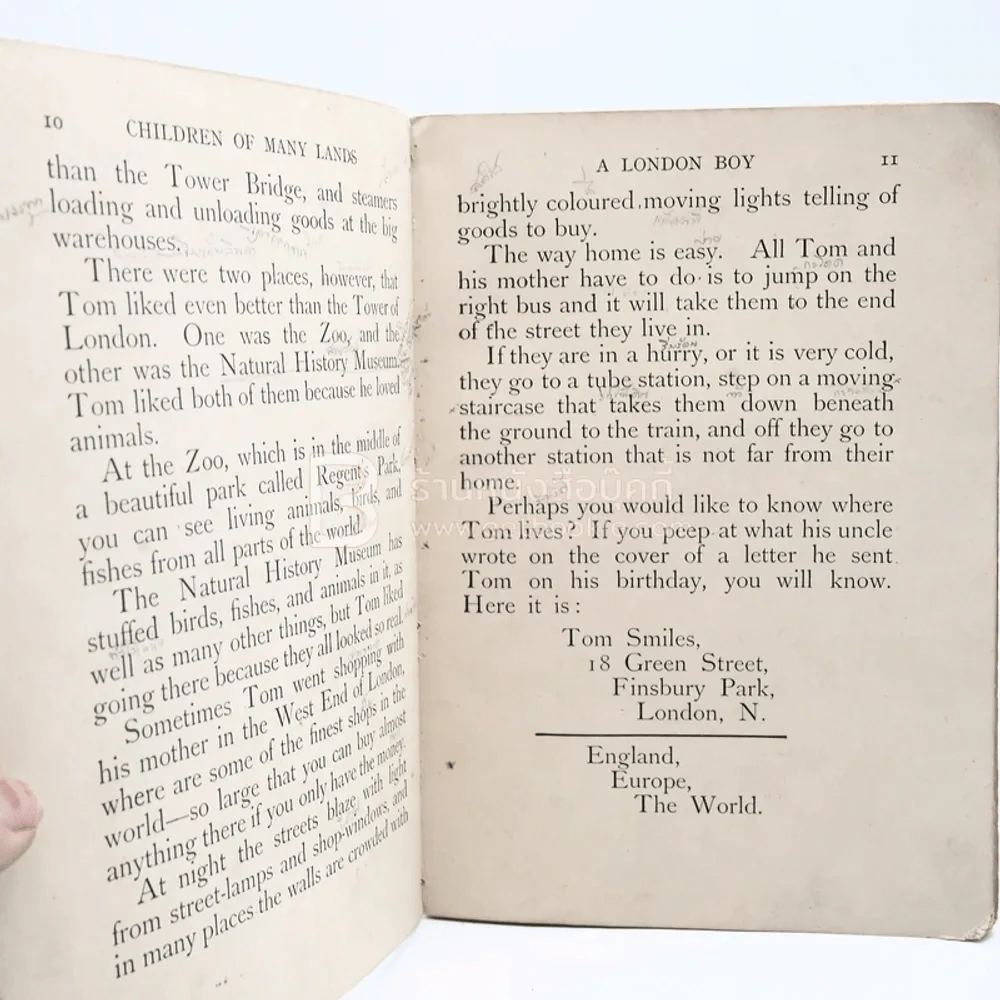 10
CHILDREN OF MANY LANDS
than the Tower Bridge, and steamers
loading and unloading goods at the big
warehouses.
There were two places, however, that
Tom liked even better than the Tower of
London. One was the Zoo, and the
other was the Natural History Museum.
Tom liked both of them because he loved
animals.
At the Zoo, which is in the middle of
a beautiful park called Regent's Park,
you can see living animals, birds, and
fishes from all parts of the world.
The Natural History Museum has
stuffed birds, fishes, and animals in it, as
well as many other things, but Tom liked
going there because they all looked so real.
Sometimes Tom went shopping with
his mother in the West End of London,
where are some of the finest shops in the
world—so large that you can buy almost
anything there if you only have the money.
At night the streets blaze with light
from street-lamps and shop-windows, and
in many places the walls are crowded with
A LONDON BOY
11
brightly coloured moving lights telling of
goods to buy.
The way home is easy. All Tom and
his mother have to do is to jump on the
right bus and it will take them to the end
of the street they live in.
If they are in a hurry, or it is very cold,
they go to a tube station, step on a moving
staircase that takes them down beneath
the ground to the train, and off they go to
another station that is not far from their
home.
Perhaps you would like to know where
Tom lives? If you peep at what his uncle
wrote on the cover of a letter he sent
Tom on his birthday, you will know.
Here it is:
Tom Smiles,
18 Green Street,
Finsbury Park,
London, N.
England,
Europe,
The World.